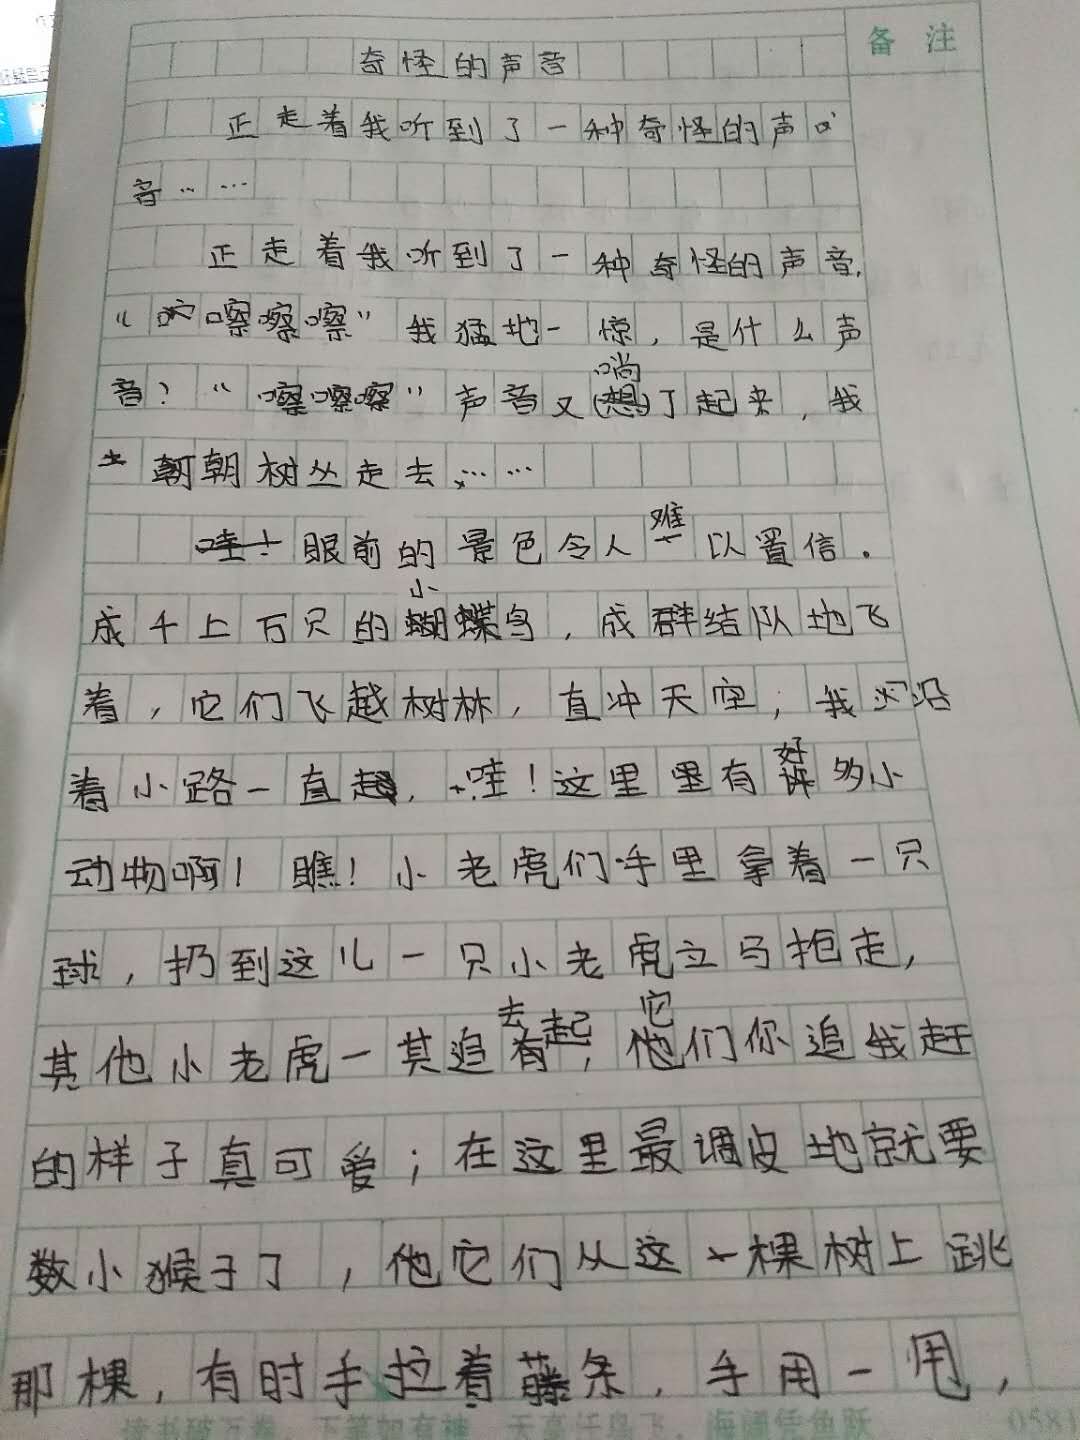 备 注
奇怪的声音
正走着我听到了一种奇怪的声
音……
正走着我听到了一种奇怪的声音.
“嚓嚓嚓”我猛地一惊，是什么声
音？“嚓嚓嚓”声音又(想)响了起来，我
朝树丛走去……
哇！眼前的景色令人难以置信。
成千上万只的小蝴蝶鸟，成群结队地飞
着，它们飞越树林，直冲天空；我沿
着小路一直走，哇！这里里有好多小
动物啊！瞧！小老虎们手里拿着一只
球，扔到这儿一只小老虎立马抱走，
其他小老虎一其追去起，它们你追我赶
的样子真可爱；在这里最调皮地就要
数小猴子了，他它们从这一棵树上跳
那棵，有时手拉着藤条，手用一甩，
读书破万卷，下笔如有神 天高任鸟飞，海阔凭鱼跃
0581